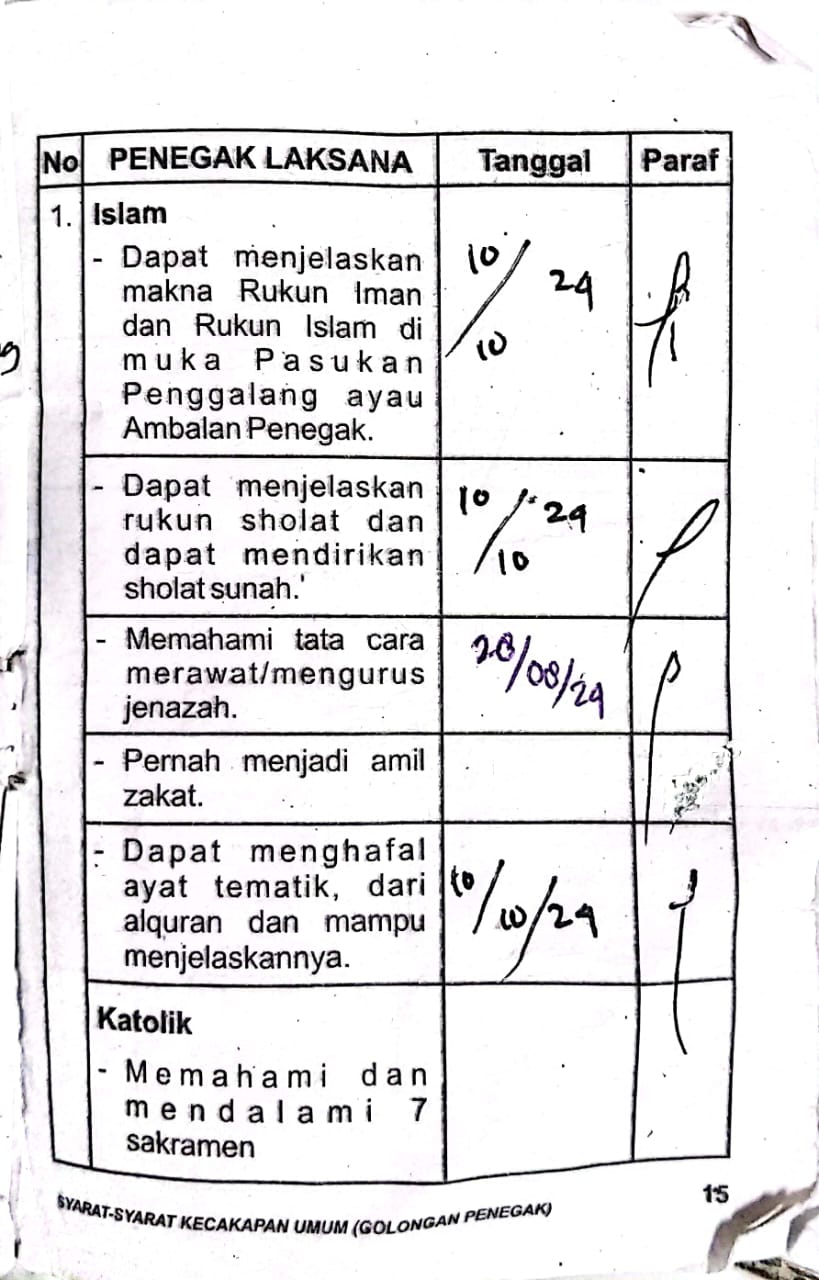 No PENEGAK LAKSANA Tanggal Paraf
1. Islam
- Dapat menjelaskan
makna Rukun Iman
dan Rukun Islam di
muka Pasukan
Penggalang ayau
Ambalan Penegak.
10/10 24
- Dapat menjelaskan
rukun sholat dan
dapat mendirikan
sholat sunah.'
10/10 24
- Memahami tata cara
merawat/mengurus
jenazah.
28/08/24
- Pernah menjadi amil
zakat.
- Dapat menghafal
ayat tematik, dari
alquran dan mampu
menjelaskannya.
10/10/24
Katolik
- Memahami dan
mendalami 7
sakramen
SYARAT-SYARAT KECAKAPAN UMUM (GOLONGAN PENEGAK)
15